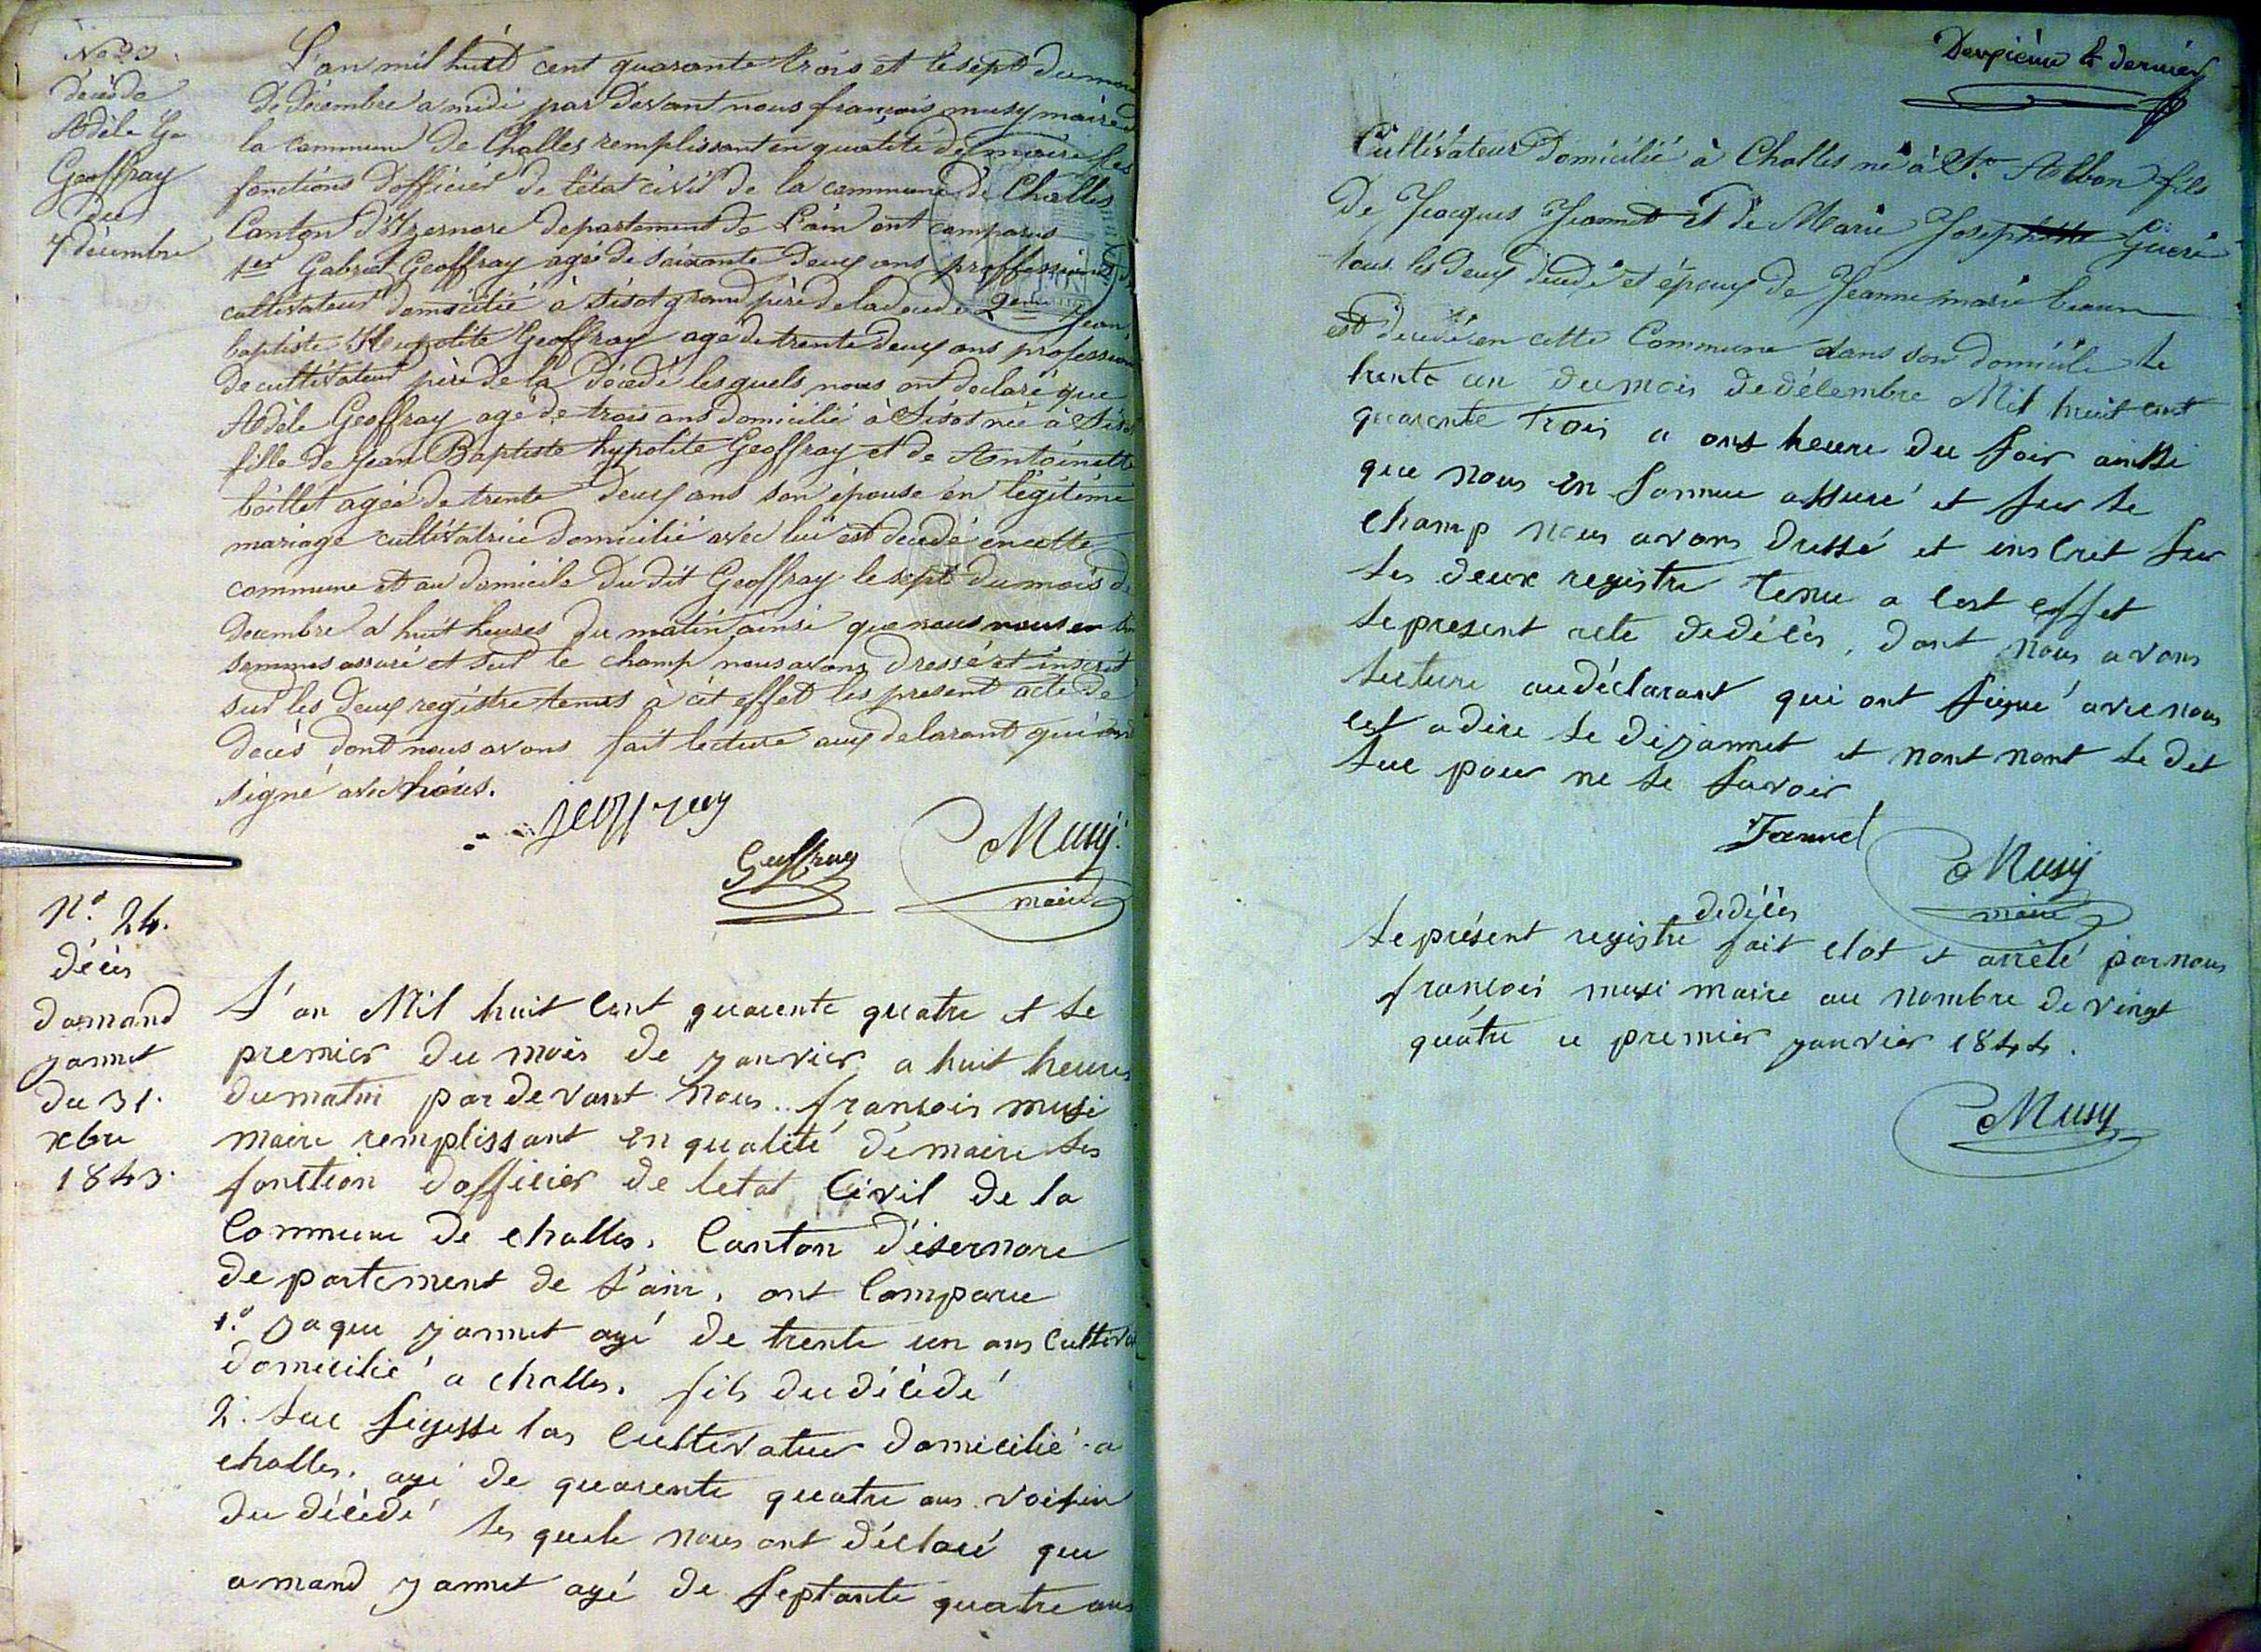 No 23
décès de
Adèle Ge
Geoffray
du
7 décembre
L'an mil huit cent quarante trois et le sept du mois
de décembre a midi par devant nous françois musy maire de
la commune de Challes remplissant en qualité de maire les
fonctions d'officier de l'état civil de la commune de Challes
Canton d'Izernore departement de L'ain ont comparus
1er Gabriel Geoffray agé de soixante deux ans proffession de
cultivateur domicilié à tisot grand père de la decedé 2eme Jean
baptiste Heypolite Geoffray agé de trente deux ans profession
de cultivateur père de la décedé lesquels nous ont declaré que
Adèle Geoffray agé de trois ans domicilié à tisot née à tisot
fille de Jean Baptiste hypolite Geoffray et de Antoinette
baillet agée de trente deux ans son épouse en légitime
mariage cultivatrice domicilié avec lui est decedé en cette
commune et au domicile du dit Geoffray le sept du mois de
decembre a huit heures du matin ainsi que nous nous en
sommes assuré et sur le champ nous avons dressé et inscrit
sur les deux registre tenus à cèt effet les present acte de
decès dont nous avons fait lecture aux delarant qui ont
signé avec nous.
jeoffray
Geoffray
Musy
maire
N.o 24.
décès
damand
yannet
du 31.
xbre
1843.
L'an Mil huit cent quarente quatre et le
premier du mois de yanvier a huit heures
du matin par devant nous françois musi
maire remplissant en qualité de maire les
fonction dofficier de letat civil de la
commune de challes. Canton d'isernore
departement de l'ain. ont comparu
1.o yaque yannet agé de trente un ans cultiva
domicilié a challes. fils du décédé
2. luc cultivateur domicilié a
challes. agé de quarente quatre ans voisin
du décédé les quels nous ont déclaré que
amand yannet agé de septante quatre ans
Deuxième & dernier
Cultivateur Domicilié à Challes né à St. Albon fils
de Jacques Jeannet et de Marie Joseph Guère
tous les deux décedé et époux de Jeanne marie
est decedé en cette Commune dans son domicile le
trente un du mois de délembre Mil huit cent
quarente trois a onz heure du soir ainsi
que nous en somme assuré et sur le
champ nous avons dressé et inscrit sur
les deux registre tenu a cest effet
le present acte de décès, dont nous avons
lecture au déclarant qui ont signé avec nous
cest a dire le di yannet et nont nont le dit
luc pour ne le savoir
Jeannet
Musy
maire
de décès
le présent registre fait clot et arrêté par nous
françois musi maire au nombre de vingt
quatre ce premier yanvier 1844.
Musy